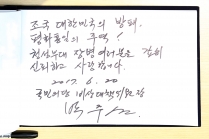 조국 대한민국의 방패.
평화통일의 주역!
천성부대 장병 여러분을 깊히
신뢰하고 사랑합니다.
2017. 6. 20
국민의당 비상대책위원장
박주선